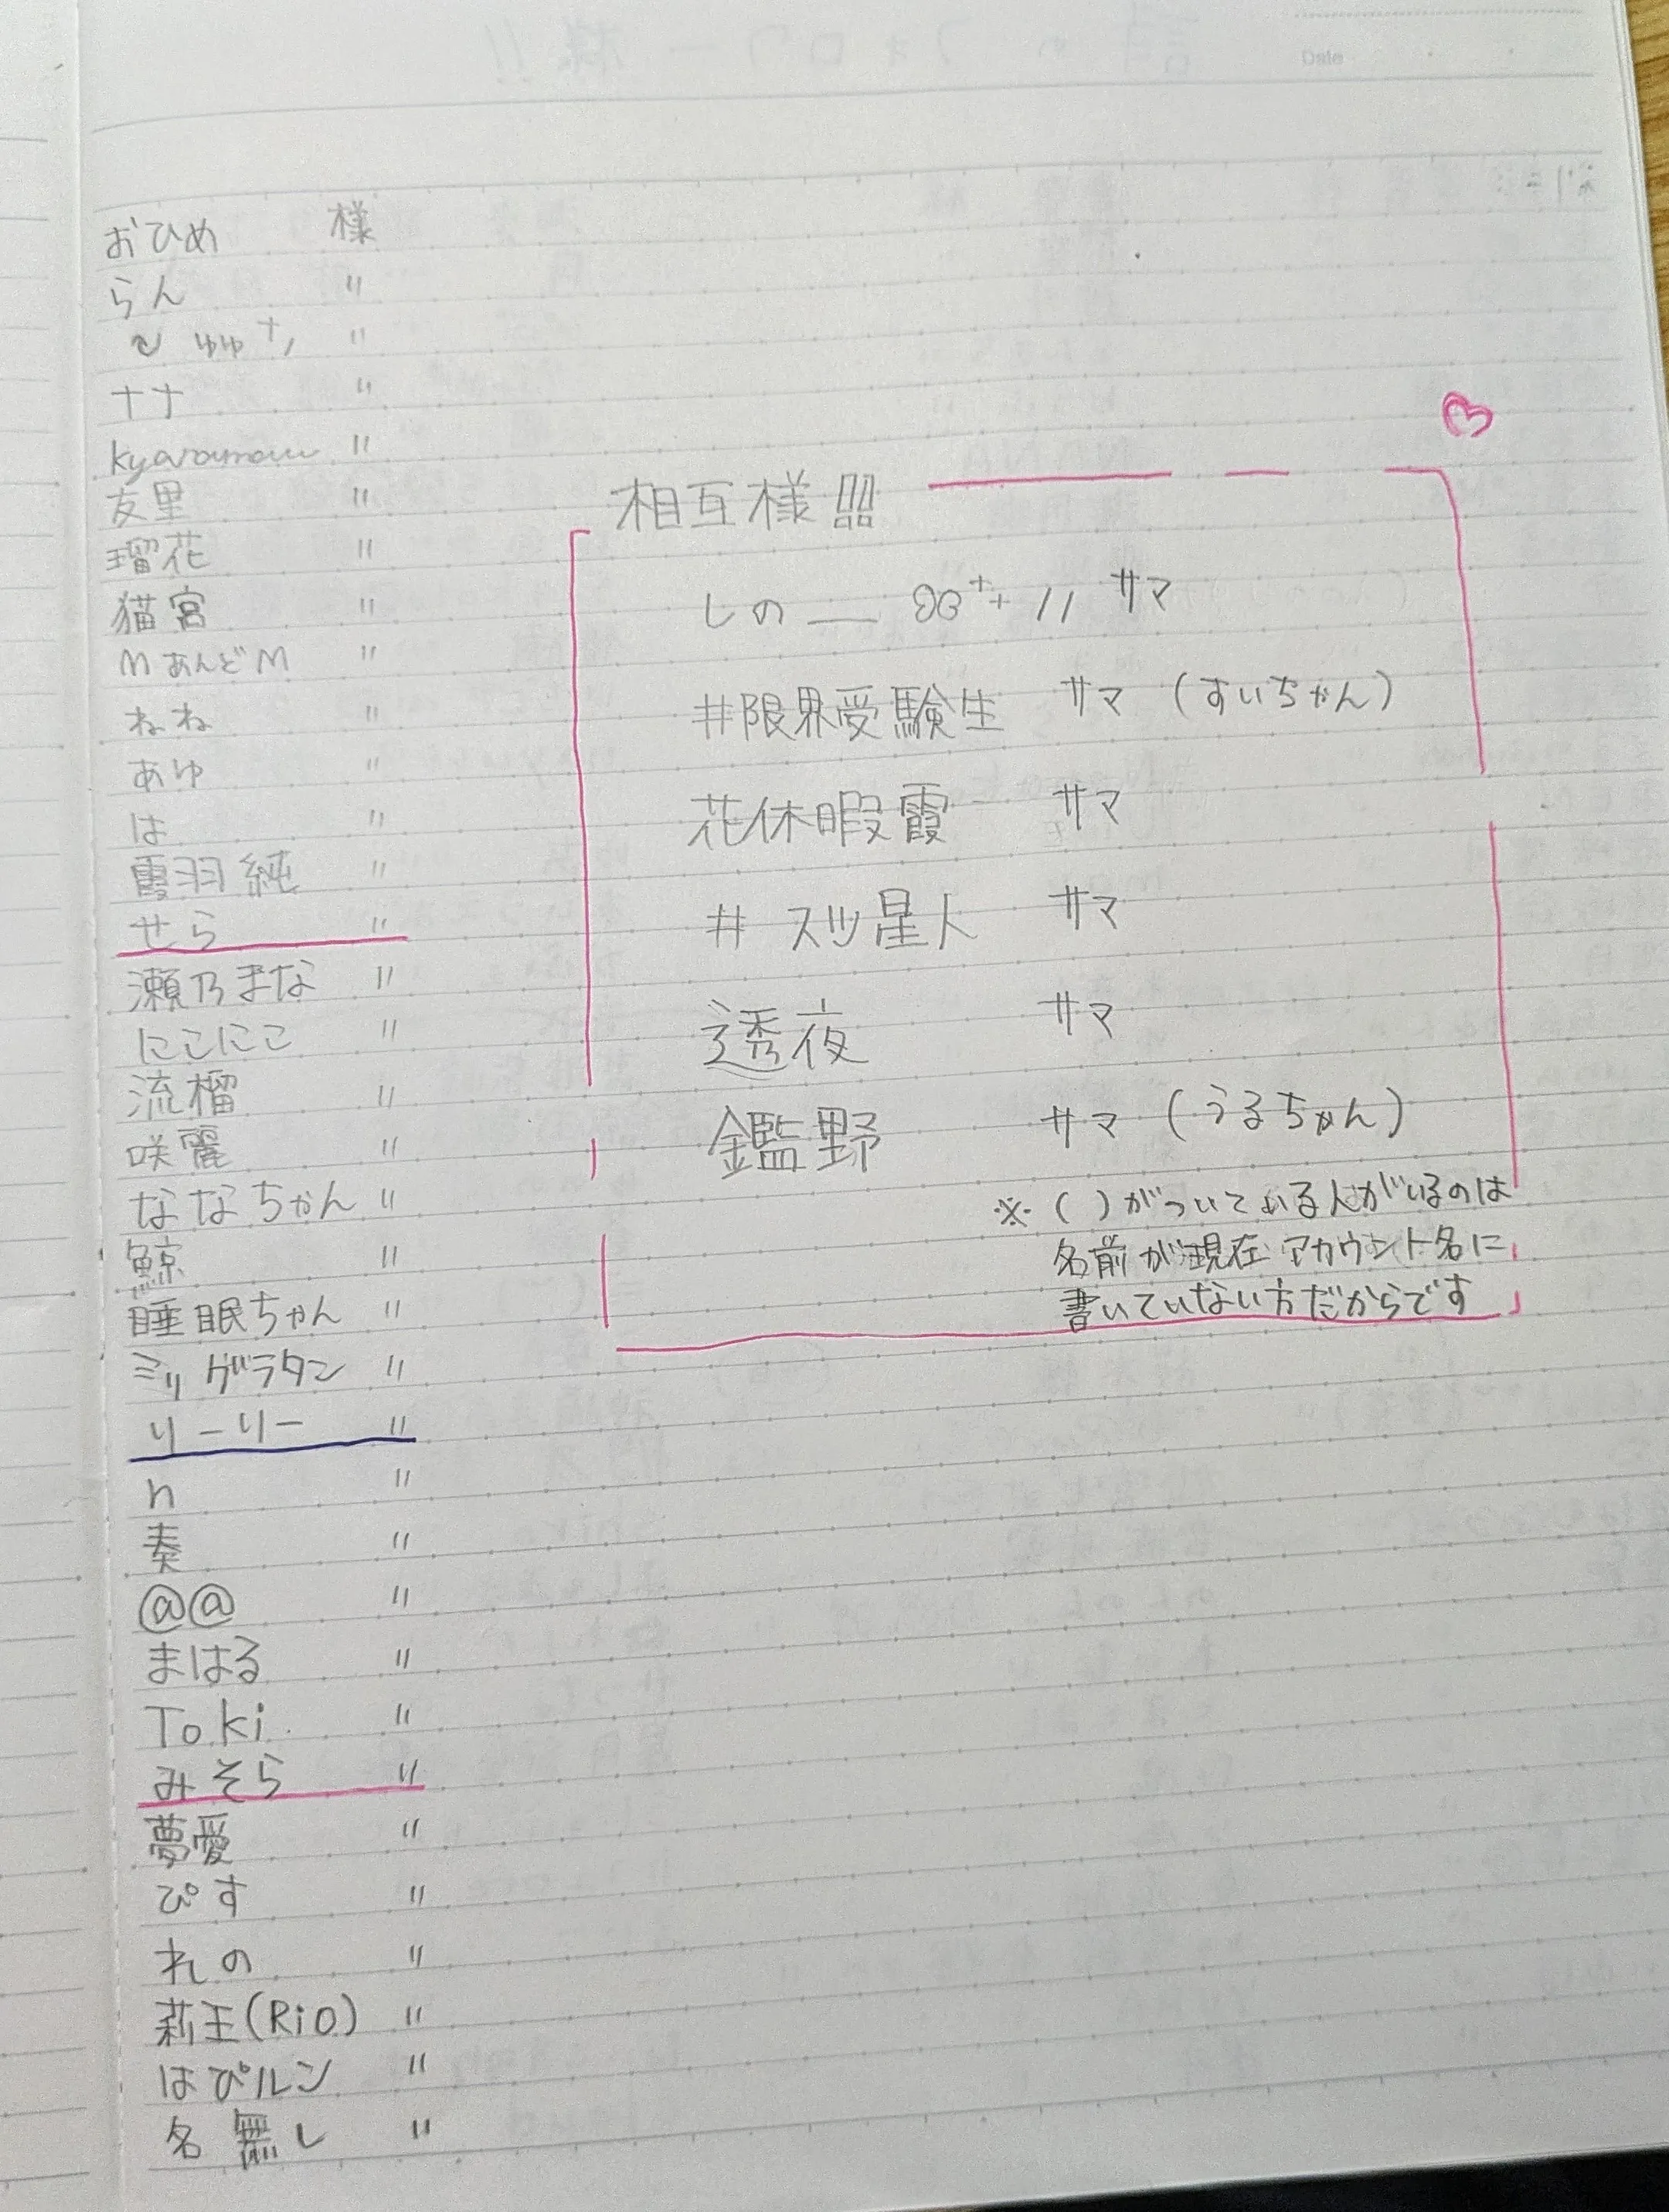 おひめ 様
らん 〃
ゆゆ 〃
ナナ 〃
kyaramaru 〃
友里 〃
瑠花 〃
猫宮 〃
MあんどM 〃
ねね 〃
あゆ 〃
は 〃
霞羽純 〃
せら 〃
瀬乃まな 〃
にこにこ 〃
流榴 〃
咲麗 〃
ななちゃん 〃
鯨 〃
睡眠ちゃん 〃
ミリグラタン 〃
りーりー 〃
n 〃
奏 〃
@@ 〃
まはる 〃
Toki 〃
みそら 〃
夢愛 〃
ぴす 〃
れの 〃
莉王(Rio) 〃
はぴルン 〃
名無し 〃
相互様!!!
しの__ サマ
#限界受験生 サマ (すいちゃん)
花休暇霞 サマ
# スツ星人 サマ
透夜 サマ
鑑野 サマ (うるちゃん)
※ ( )がついている人がいるのは
名前が現在アカウント名に
書いていない方だからです
Date